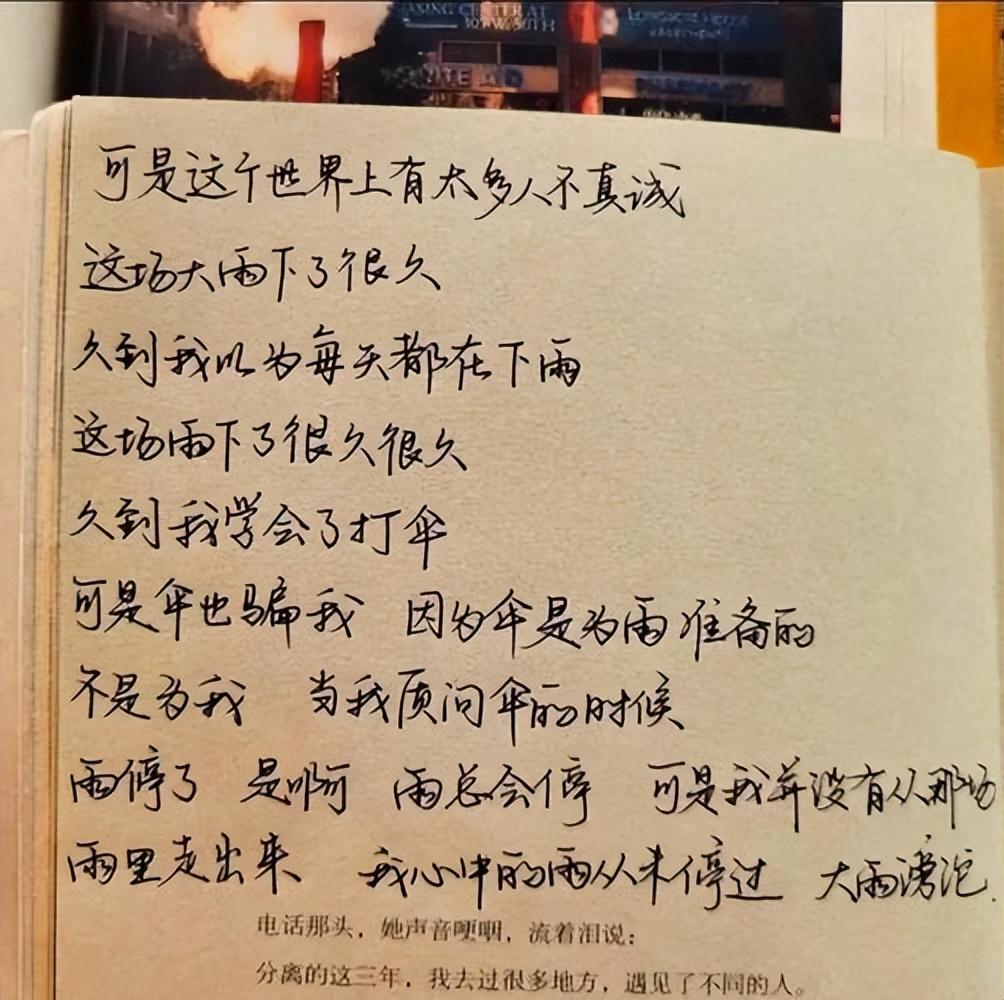 ASING CENTER AT
30TW/50TH
可是这个世界上有太多人不真诚
这场大雨下了很久
久到我以为每天都在下雨
这场雨下了很久很久
久到我学会了打伞
可是伞也骗我 因为伞是为雨准备的
不是为我 当我质问伞的时候
雨停了 是啊 雨总会停 可是我并没有从那场
雨里走出来 我心中的雨从未停过 大雨滂沱.
电话那头，她声音哽咽，流着泪说：
分离的这三年，我去过很多地方，遇见了不同的人。